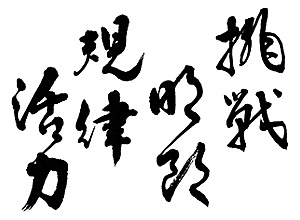 挑戦
明朗
規律
活力